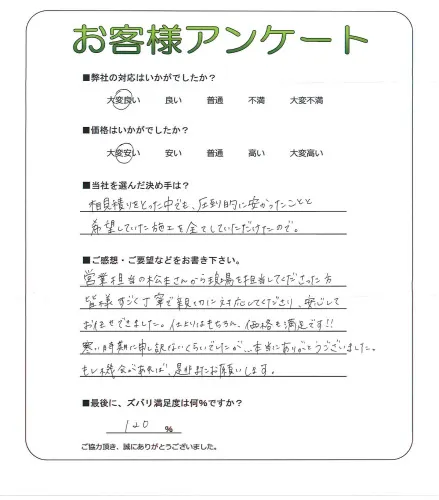 お客様アンケート
■弊社の対応はいかがでしたか？
大変良い 良い 普通 不満 大変不満
■価格はいかがでしたか？
大変安い 安い 普通 高い 大変高い
■当社を選んだ決め手は？
相見積りをとった中でも、圧倒的に安かったことと
希望していた施工を全てしていただけたので。
■ご感想・ご要望などをお書き下さい。
営業担当の松本さんから現場を担当してくださった方
皆様すごく丁寧で親切に対応してくださり、安心して
お任せできました。仕上りはもちろん、価格も満足です!!
寒い時期に申し訳ないくらいでしたが…本当にありがとうございました。
もし機会があれば、是非またお願いします。
■最後に、ズバリ満足度は何％ですか？
120 %
ご協力頂き、誠にありがとうございました。